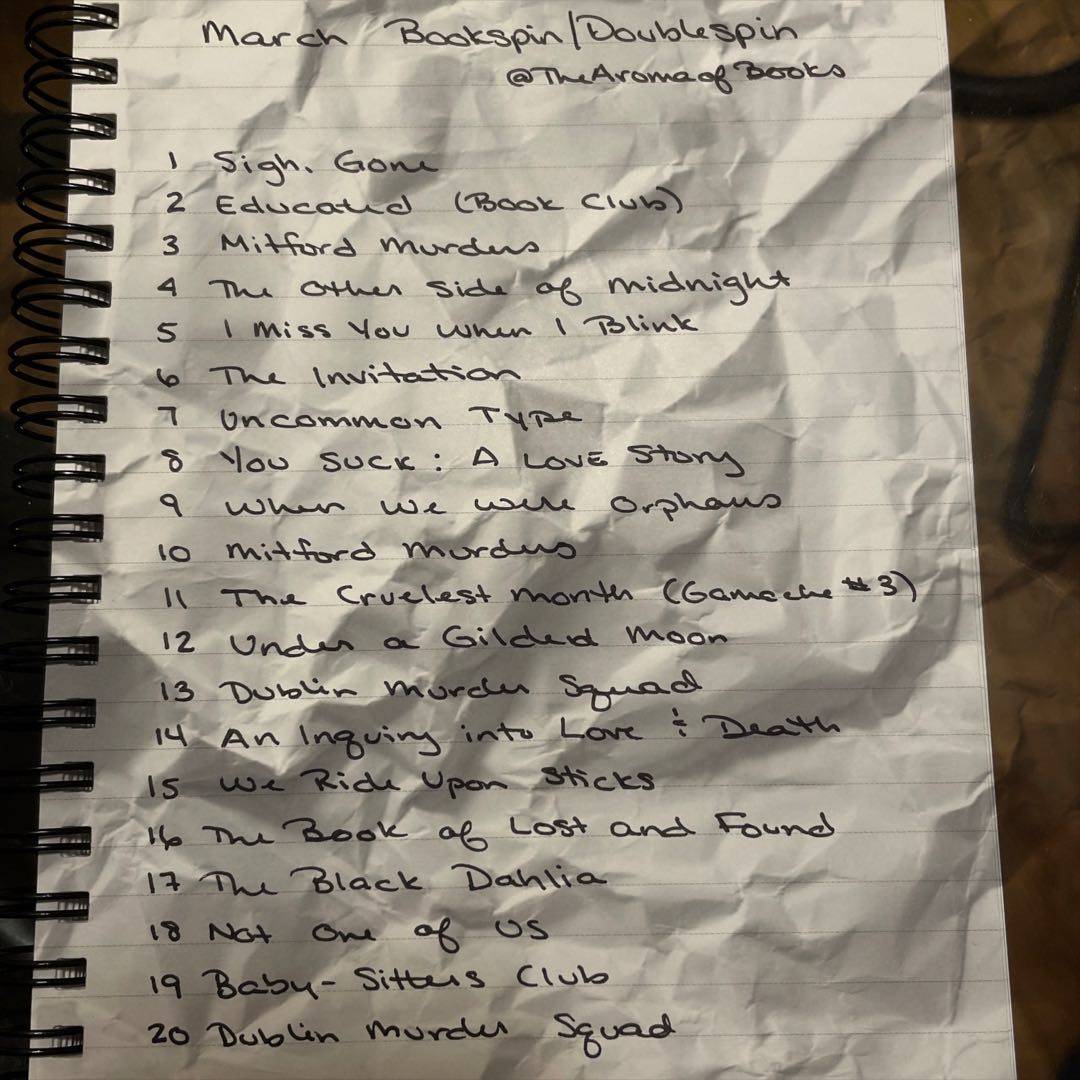 March Bookspin/Doublespin
@TheAromaofBooks
1 Sigh, Gone
2 Educated (Book Club)
3 Mitford Murders
4 The Other Side of Midnight
5 I Miss You When I Blink
6 The Invitation
7 Uncommon Type
8 You Suck: A Love Story
9 When We Were Orphans
10 Mitford Murders
11 The Cruelest Month (Gamache #3)
12 Under a Gilded Moon
13 Dublin Murder Squad
14 An Inquiry into Love & Death
15 We Ride Upon Sticks
16 The Book of Lost and Found
17 The Black Dahlia
18 Not One of Us
19 Baby-Sitters Club
20 Dublin Murder Squad